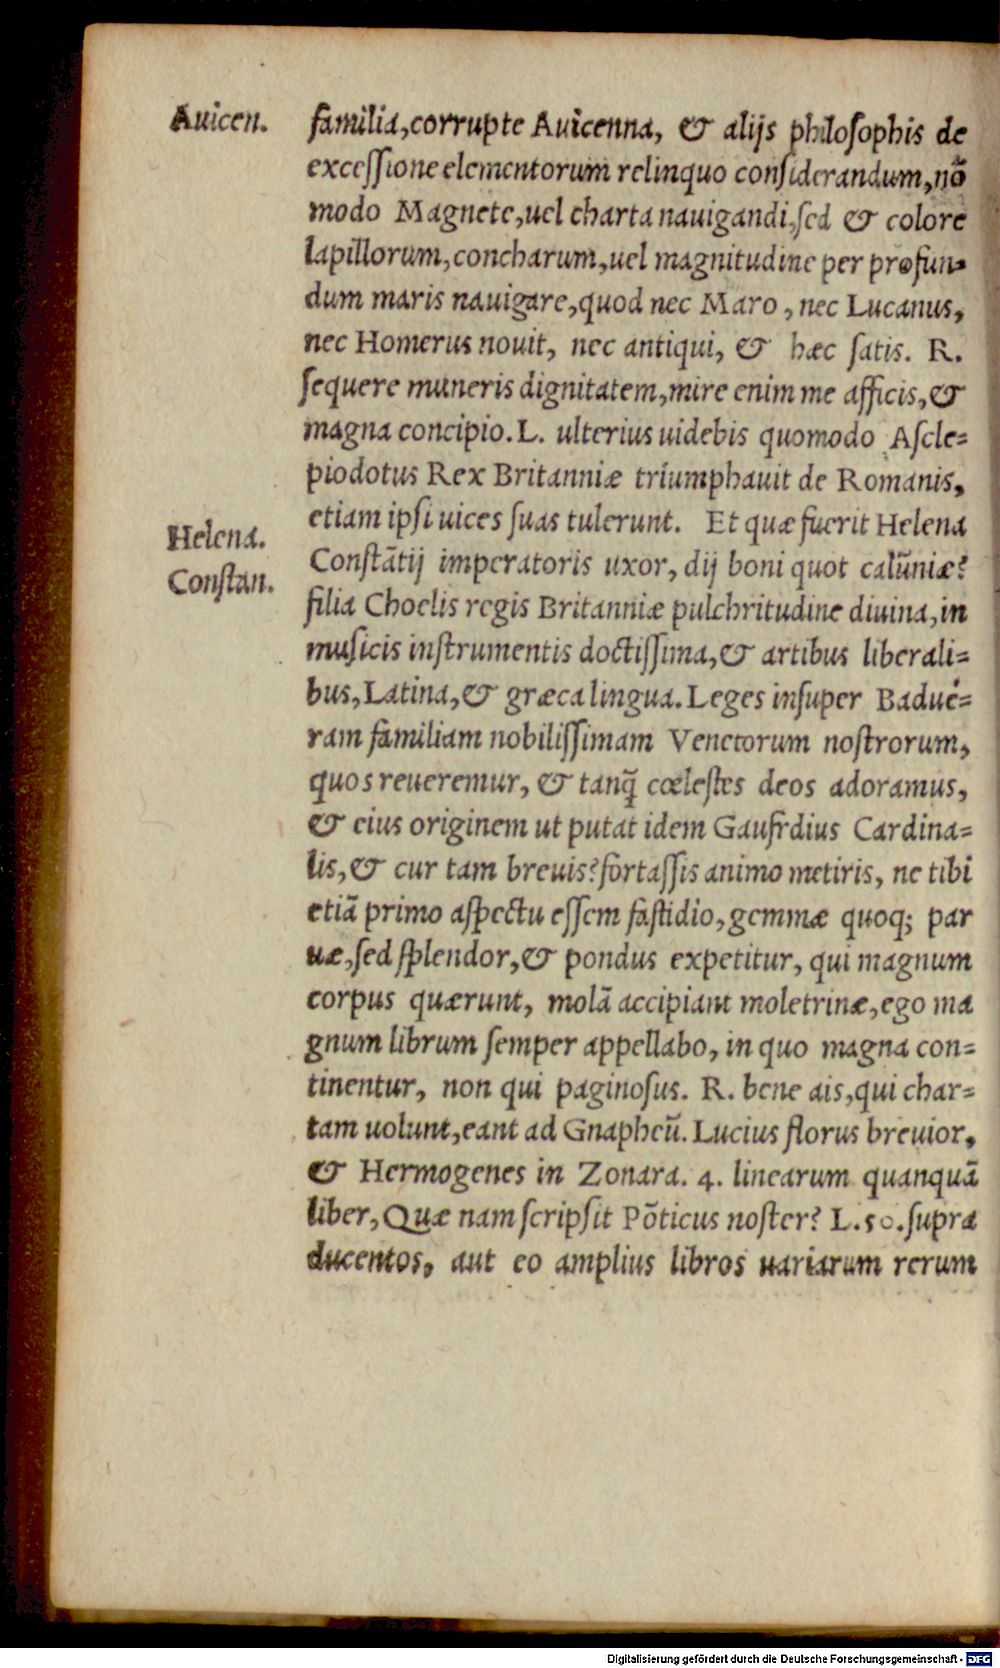 Auicen.
familia,corrupte Auicenna, & alijs philosophis de
excessione elementorum relinquo considerandum,nõ
modo Magnete,uel charta nauigandi,sed & colore
lapillorum,concharum,uel magnitudine per profun-
dum maris nauigare,quod nec Maro, nec Lucanus,
nec Homerus nouit, nec antiqui, & hæc satis. R.
sequere muneris dignitatem,mire enim me afficis,&
magna concipio.L. ulterius uidebis quomodo Ascle-
piodotus Rex Britanniæ triumphauit de Romanis,
etiam ipsi uices suas tulerunt. Et quæ fuerit Helena
Helena.
Constãtij imperatoris uxor, dij boni quot calũniæ?
Constan.
filia Choelis regis Britanniæ pulchritudine diuina,in
musicis instrumentis doctissima,& artibus liberali-
bus,Latina,& græca lingua.Leges insuper Badué-
ram familiam nobilissimam Venetorum nostrorum,
quos reueremur, & tanq̃ cœlestes deos adoramus,
& eius originem ut putat idem Gaufrdius Cardina-
lis,& cur tam breuis?fortassis animo metiris, ne tibi
etiã primo aspectu essem fastidio,gemmæ quoq; par
uæ,sed splendor,& pondus expetitur, qui magnum
corpus quærunt, molã accipiant moletrinæ,ego ma
gnum librum semper appellabo, in quo magna con-
tinentur, non qui paginosus. R. bene ais,qui char-
tam uolunt,eant ad Gnapheũ.Lucius florus breuior,
& Hermogenes in Zonara. 4. linearum quanquã
liber,Quæ nam scripsit Põticus noster? L.50.supra
ducentos, aut eo amplius libros uariarum rerum
Digitalisierung gefördert durch die Deutsche Forschungsgemeinschaft - DFG